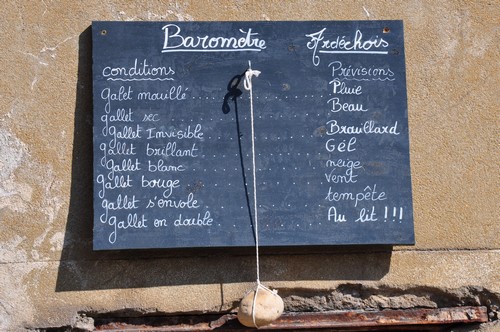 Baromètre Ardéchois
conditions Prévisions
galet mouillé .................... Pluie
gallet sec .................... Beau
gallet Invisible .................... Brouillard
gallet brillant .................... Gél
gallet blanc .................... neige
gallet bouge .................... vent
gallet s'envole .................... tempête
gallet en double .................... Au lit !!!